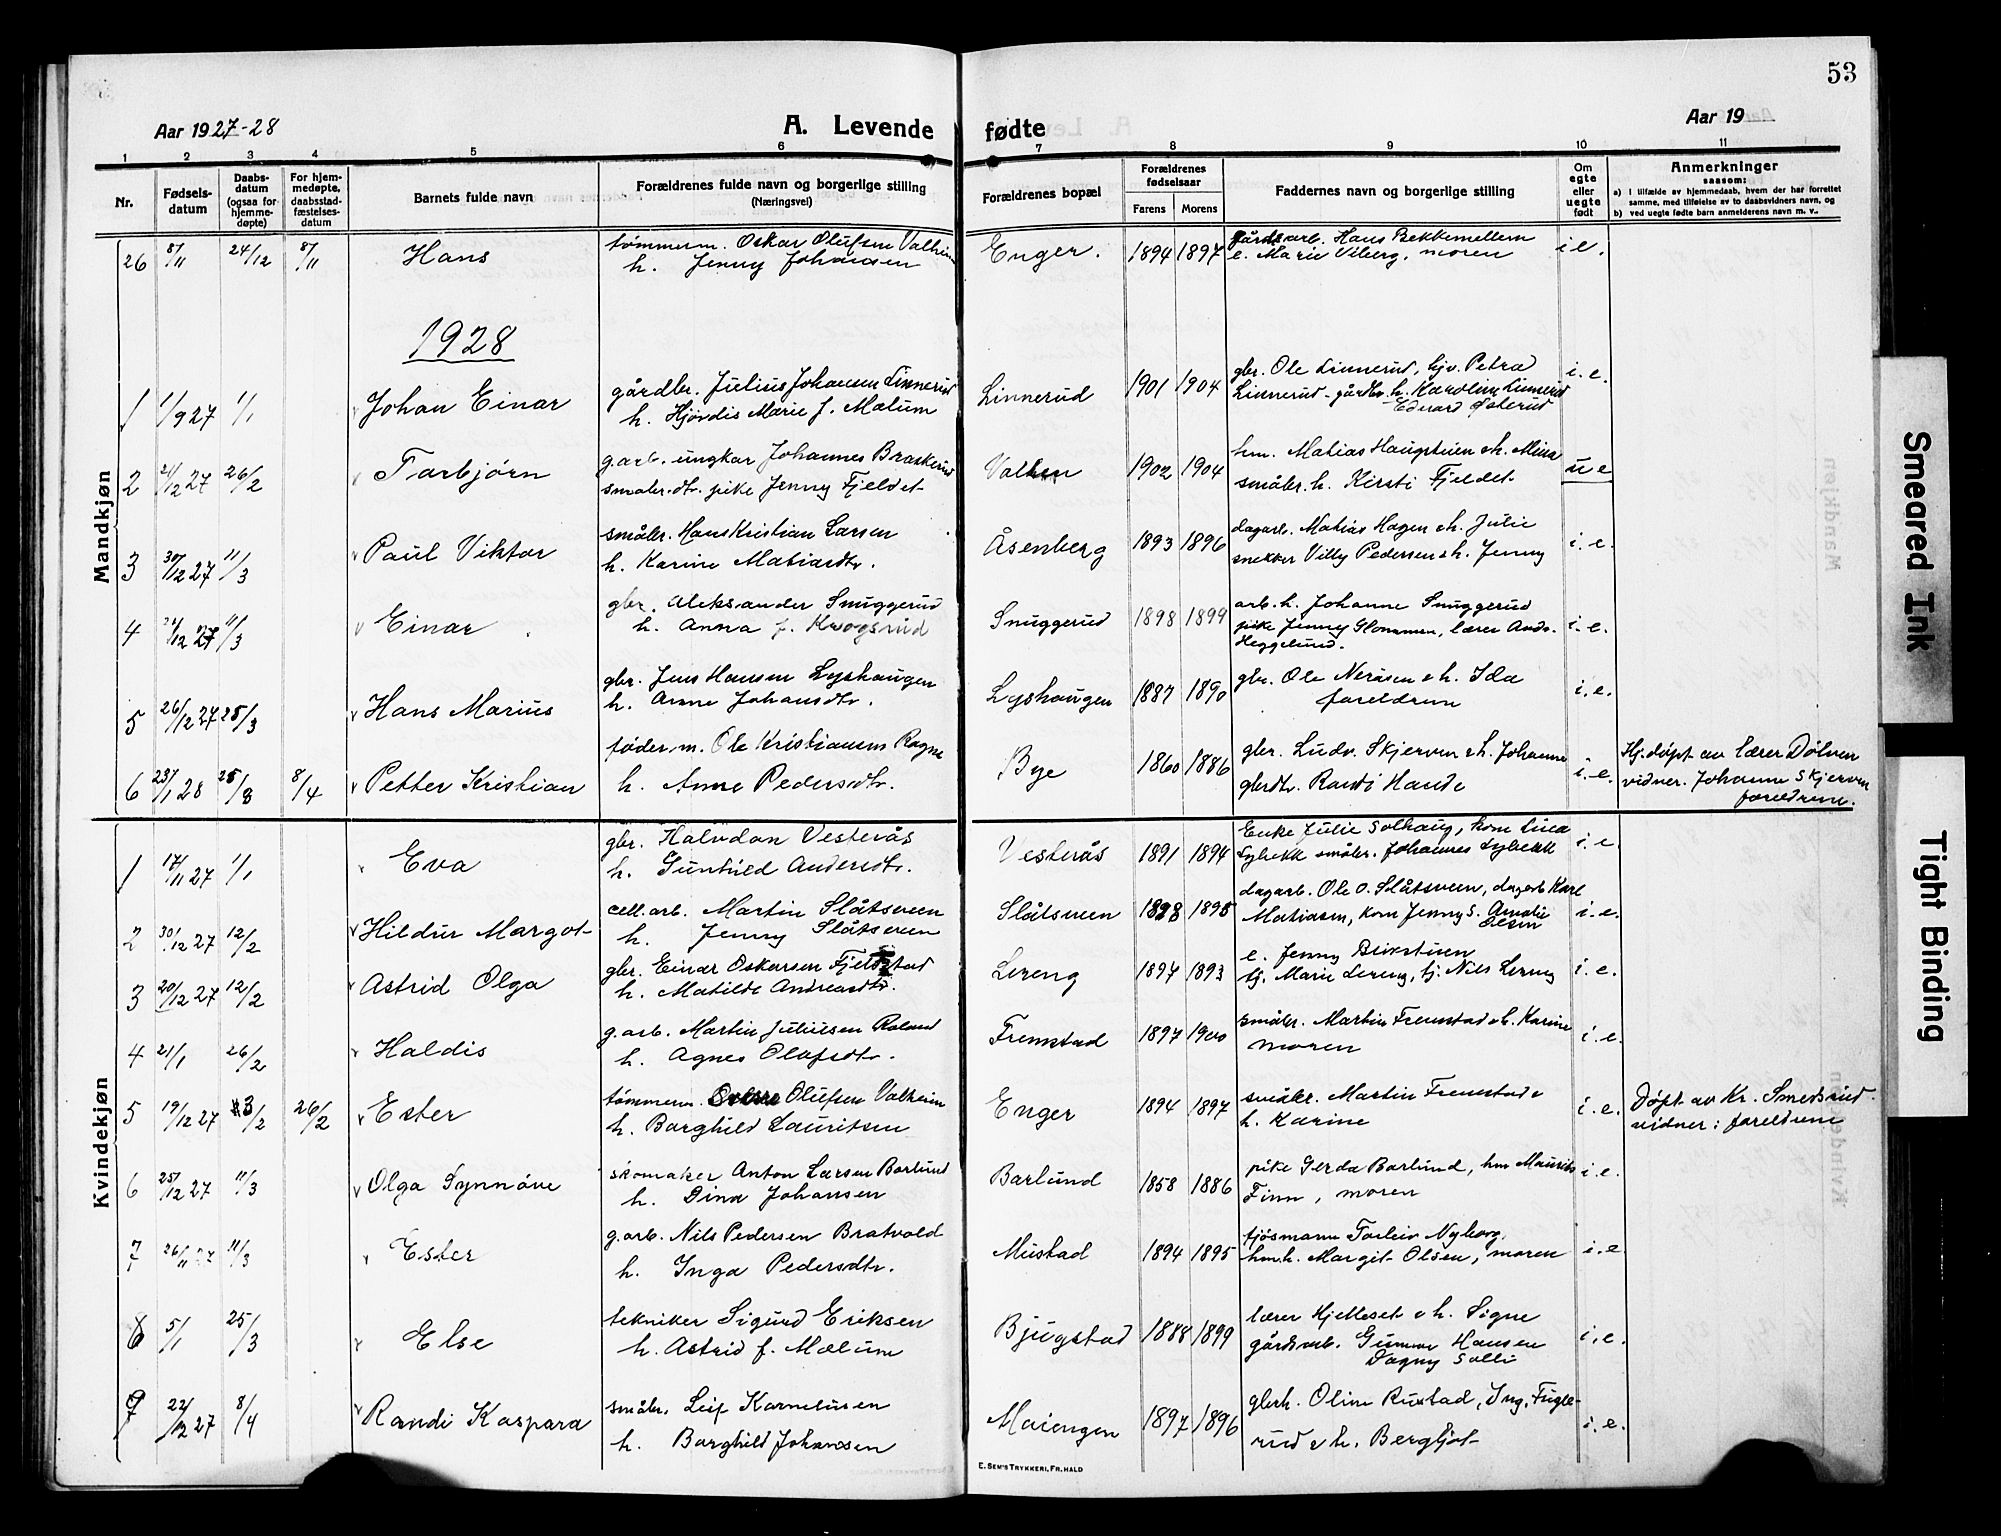 53
Aar 1927-28
A. Levende fødte
Aar 19
1 2 3 4 5 6 7 8 9 10 11
Nr.
Fødsels-
datum
Daabs-
datum
(ogsaa for
hjemme-
døpte)
For hjem-
medøpte,
daabsstad-
fæstelses-
datum
Barnets fulde navn
Forældrenes fulde navn og borgerlige stilling
(Næringsvei)
Forældrenes bopæl
Forældrenes
fødselsaar
Farens Morens
Faddernes navn og borgerlige stilling
Om
egte
eller
uegte
født
Anmerkninger
saasom:
a) i tilfælde av hjemmedaab, hvem der har forrettet
samme, med tilføielse av to daabsvidners navn, og
b) ved uegte fødte barn anmelderens navn m. v..
26 8/11 24/12 8/11 Hans tømmerm. Oskar Olufsen Valheim Enger. 1894 1897 gårdsarb. Hans Bekkemellem i e.
h. Jenny Johansen e. Marie Viberg, moren
1928
Mandkjøn
1 1/9 27 1/1 Johan Einar gårdbr. Julius Johansen Linnerud Linnerud 1901 1904 gbr. Ole Linnerud, Gjv. Petra i. e.
h. Hjørdis Marie f. Mælum Linnerud - gårdbr. h. Karoline Linnerud
Edvard Østerud
2 21/12 27 26/2 Torbjørn g.arb. ungkar Johannes Braskerud Valhen 1902 1904 hm. Matias Haugstuen e h. Mina u e
småbr. dtr. pike Jenny Fjeldet småbr. h. Kirsti Fjeldet
3 30/12 27 11/3 Paul Viktor småbr. Hans Kristian Larsen Åsenberg 1893 1896 dagarb. Matias Hagen e h. Julie i. e.
h. Karine Matiasdtr. snekker Villy Pedersen e h. Jenny
4 21/12 27 11/3 Einar gbr. Aleksander Snuggerud Snuggerud 1898 1899 arb. h. Johanne Snuggerud i. e.
h. Anna f. Krogsrud pike Jenny Glommen, lærer Ands.
Heggelund.
5 26/12 27 25/3 Hans Marius gbr. Jens Hansen Lyshaugen Lyshaugen 1887 1890 gbr. Ole Neråsen e h. Ida i. e.
h. Anne Johansdtr. foreldrene
6 23/1 28 25/8 8/4 Petter Kristian føder.m. Ole Kristiansen Ragne Bye 1860 1886 gbr. Ludv. Skjerven e h. Johanne i. e. Hj. døpt av lærer Dølven
h. Anne Pedersdtr. gbrdtr. Randi Hande vidner. Johanne Skjerven
foreldrene.
Kvindekjøn
1 17/11 27 1/1 Eva gbr. Halvdan Vesterås Vesterås 1891 1894 Enke Julie Solhaug, kone Lina i. e.
h. Gunhild Andersdtr. Lybekk småbr. Johannes Lybekk
2 30/12 27 12/2 Hildur Margot cell.arb. Martin Slåtsveen Slåtsveen 1898 1895 dagarb. Ole O. Slåtsveen, dagarb Karl i. e.
h. Jenny Slåtsveen Matiasen, kone Jenny S. Amalie
Olsen
3 20/12 27 12/2 Astrid Olga gbr. Einar Oskarsen Fjeldstad Lereng 1897 1893 e. Jenny Birkstuen i. e.
h. Matilde Andreasdtr. tj. Marie Lereng, tj. Nils Lereng
4 21/1 26/2 Haldis g.arb. Martin Juliusen Roland Fremstad 1897 1900 småbr. Martin Fremstad e h. Karine i. e.
h. Agnes Olafsdtr. moren
5 19/12 27 3/2 26/2 Ester tømmerm. Olufsen Valheim Enger 1894 1897 småbr. Martin Fremstad e i. e. Døpt av Kr. Smedsrud
h. Borghild Lauritsen h. Karine vidner: foreldrene
6 25/12 27 11/3 Olga Synnøve skomaker Anton Larsen Borlund Borlund 1858 1886 pike Gerda Borlund, hm Maurits i. e.
h. Dina Johansen Finn, moren
7 26/11 27 11/3 Ester g.arb. Nils Pedersen Bratvold Mustad 1894 1895 fjøsmann Torleiv Nyborg. i. e
h. Inga Pedersdtr. hm.h. Margit Olsen, moren
8 5/1 25/3 Else tekniker Sigurd Eriksen Bjugstad 1888 1899 lærer Hjelleset e h. Signe i. e.
h. Astrid f. Mælum gårdsarb. Gunnar Hansen
Dagny Solli
9 22/12 27 8/4 Randi Kaspara småbr. Leif Korneliusen Moiengen 1897 1896 gbrh. Oline Rustad, Ing. Fugle- i. e.
h. Borghild Johansen rud e h. Bergljot
E. SEM'S TRYKKERI, FR. HALD
Smeared Ink
Tight Binding